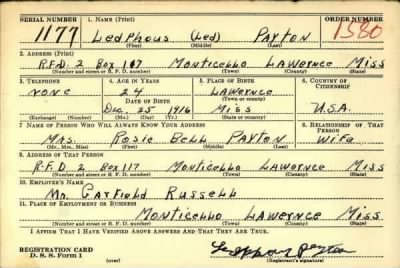 SERIAL NUMBER 1. NAME (Print) ORDER NUMBER
1177 Ledphous (Led) Payton 1580
(First) (Middle) (Last)
2. ADDRESS (Print)
R.F.D. 2 Box 117 Monticello Lawernce Miss
(Number and street or R. F. D. number) (Town) (County) (State)
3. TELEPHONE 4. AGE IN YEARS 5. PLACE OF BIRTH 6. COUNTRY OF CITIZENSHIP
none 24 Lawernce
DATE OF BIRTH (Town or county)
Dec. 25 1916 Miss U.S.A.
(Exchange) (Number) (Mo.) (Day) (Yr.) (State or country)
7. NAME OF PERSON WHO WILL ALWAYS KNOW YOUR ADDRESS 8. RELATIONSHIP OF THAT PERSON
Mrs Rosie Bell Payton Wife
(Mr., Mrs., Miss) (First) (Middle) (Last)
9. ADDRESS OF THAT PERSON
R.F.D 2 Box 117 Monticello Lawernce Miss
(Number and street or R. F. D. number) (Town) (County) (State)
10. EMPLOYER'S NAME
Mr. Garfield Russell
11. PLACE OF EMPLOYMENT OR BUSINESS
Monticello Lawernce Miss
(Number and street or R. F. D. number) (Town) (County) (State)
I AFFIRM THAT I HAVE VERIFIED ABOVE ANSWERS AND THAT THEY ARE TRUE.
REGISTRATION CARD
D. S. S. Form 1 (over) (Registrant's signature)